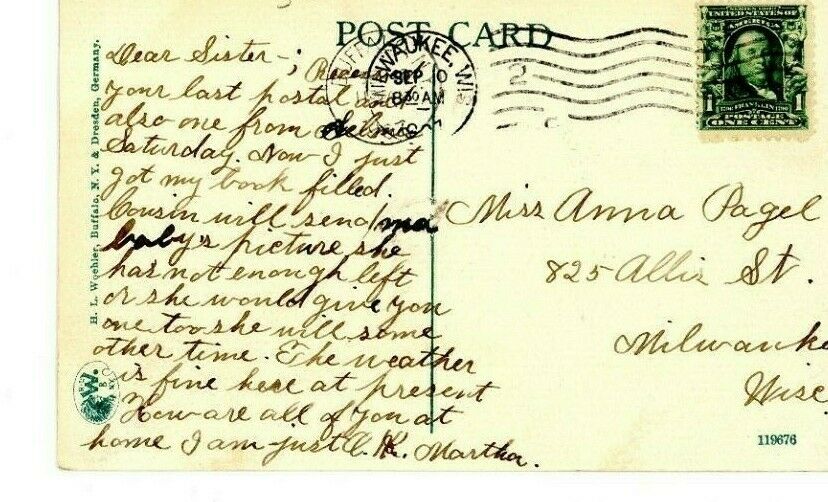 POST CARD
Dear Sister-; Received
your last postal and
also one from Selma
Saturday. Now I just
got my book filled.
Cousin will send ma
baby's picture she
has not enough left
or she would give you
one too she will some
other time. The weather
is fine here at present
How are all of you at
home I am just O.K. Martha.
MILWAUKEE, WIS
SEP 10
830 AM
UNITED STATES OF
AMERICA
1
FRANKLIN
1
POSTAGE
ONE CENT
Miss Anna Pagel
825 Allis St.
Milwauke
Wisc
H. L. Woehler, Buffalo, N. Y. & Dresden, Germany.
W.
119676